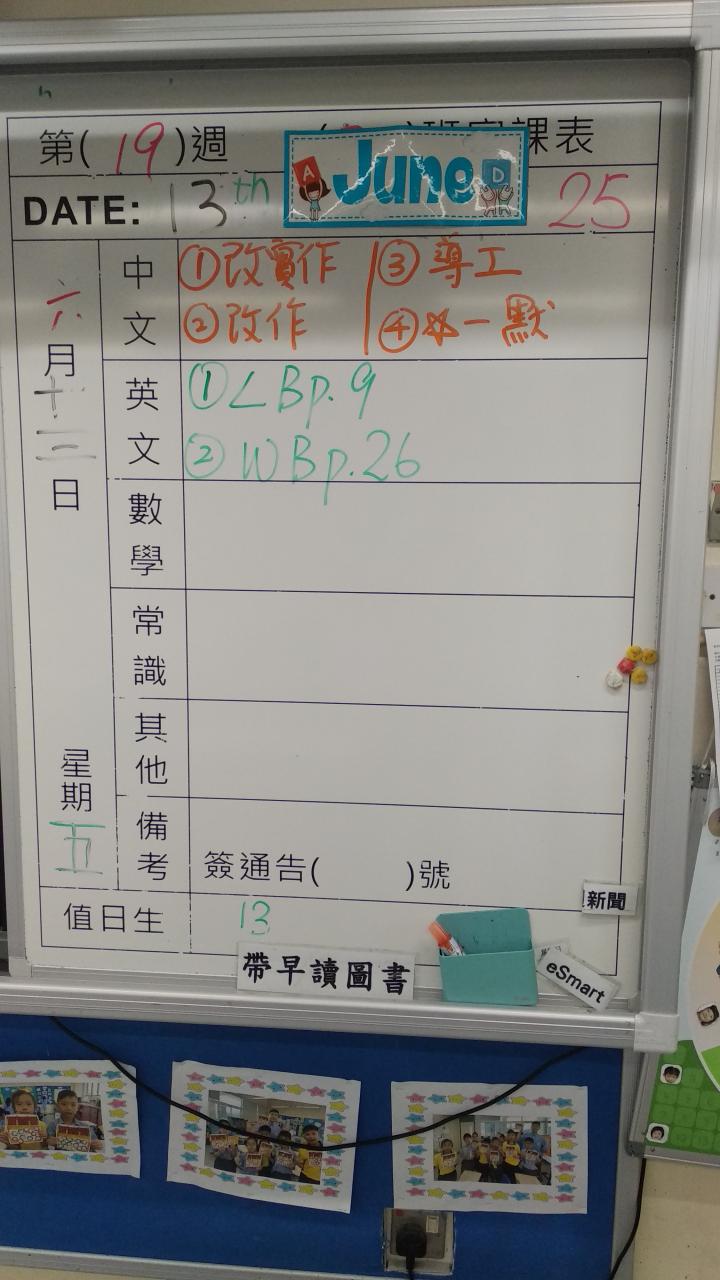 第( 19 )週 ( )班家課表
DATE: 13th June 25
A D
六月十三日
星期五
中文
①改實作 ③導工
②改作 ④☆一默
英文
①LBp.9
②WBp.26
數學
常識
其他
備考
簽通告( )號
值日生 13
新聞
帶早讀圖書
eSmart